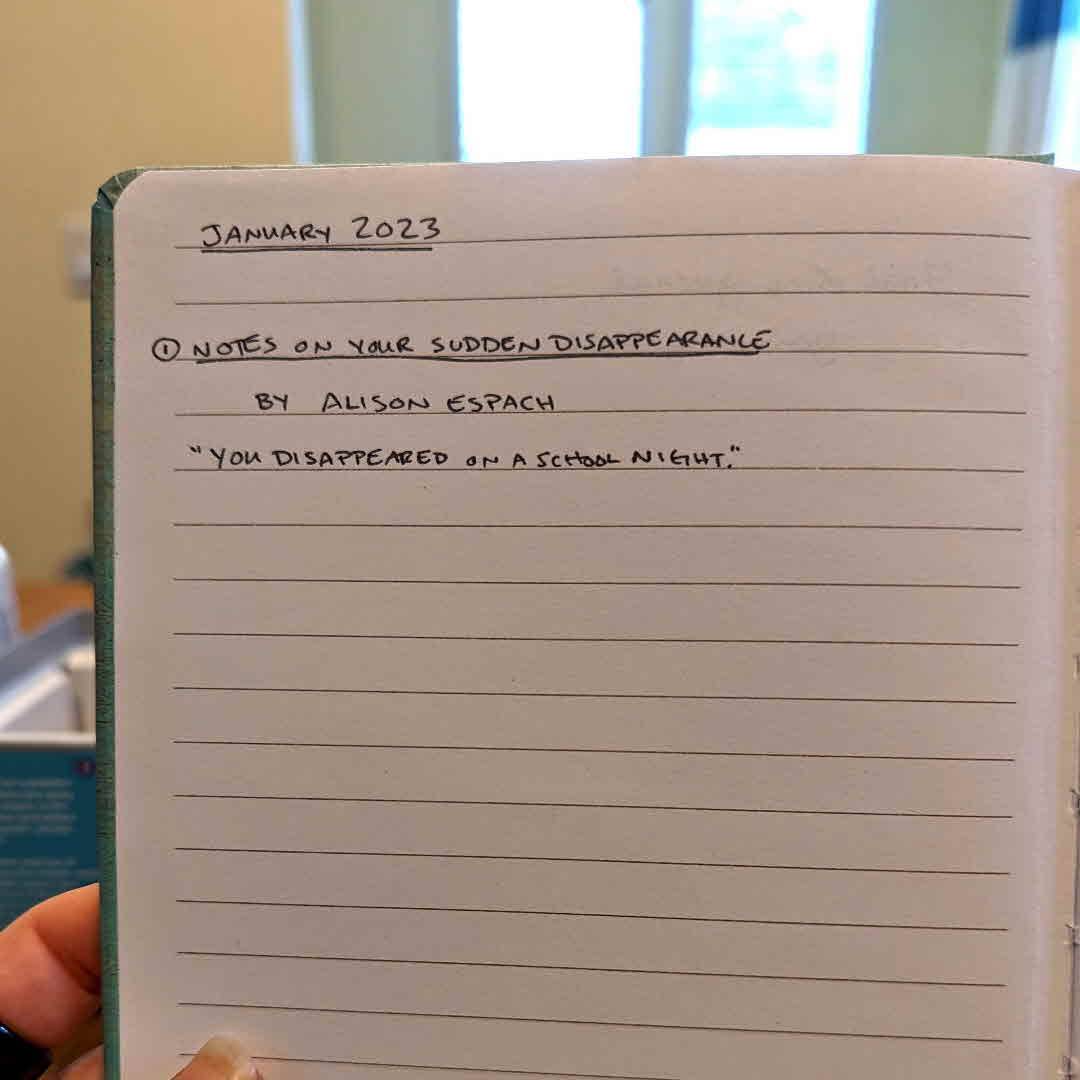 JANUARY 2023
① NOTES ON YOUR SUDDEN DISAPPEARANCE
BY ALISON ESPACH
"YOU DISAPPEARED ON A SCHOOL NIGHT."